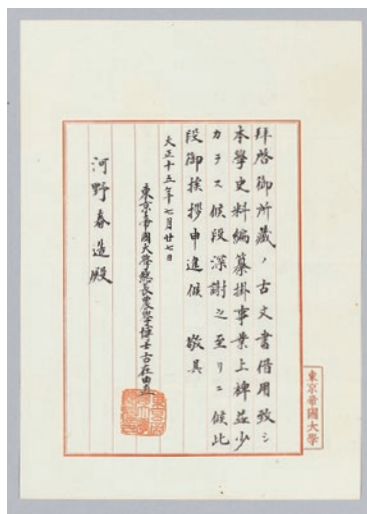 拜啓御所藏ノ古文書借用致シ
本學史料編纂掛事業上裨益少
カラス候段深謝之至リニ候此
段御挨拶申進候 敬具
大正十五年七月廿七日
東京帝國大學總長農學博士古在由直
河野春造殿
東京帝國大學